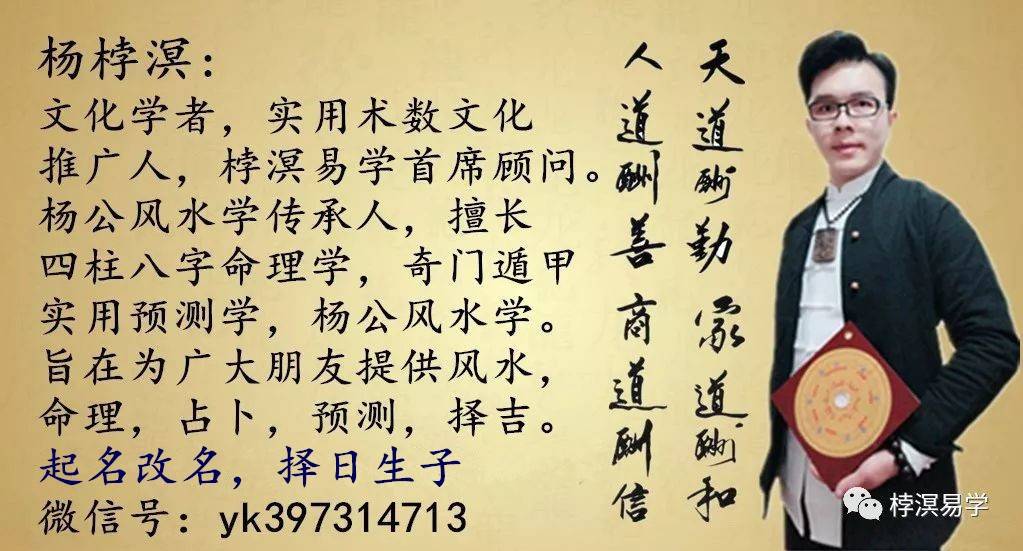 杨桲溟：
文化学者，实用术数文化
推广人，桲溟易学首席顾问。
杨公风水学传承人，擅长
四柱八字命理学，奇门遁甲
实用预测学，杨公风水学。
旨在为广大朋友提供风水，
命理，占卜，预测，择吉。
起名改名，择日生子
微信号：yk397314713
天道酬勤 家道酬和
人道酬善 商道酬信
桲溟易学